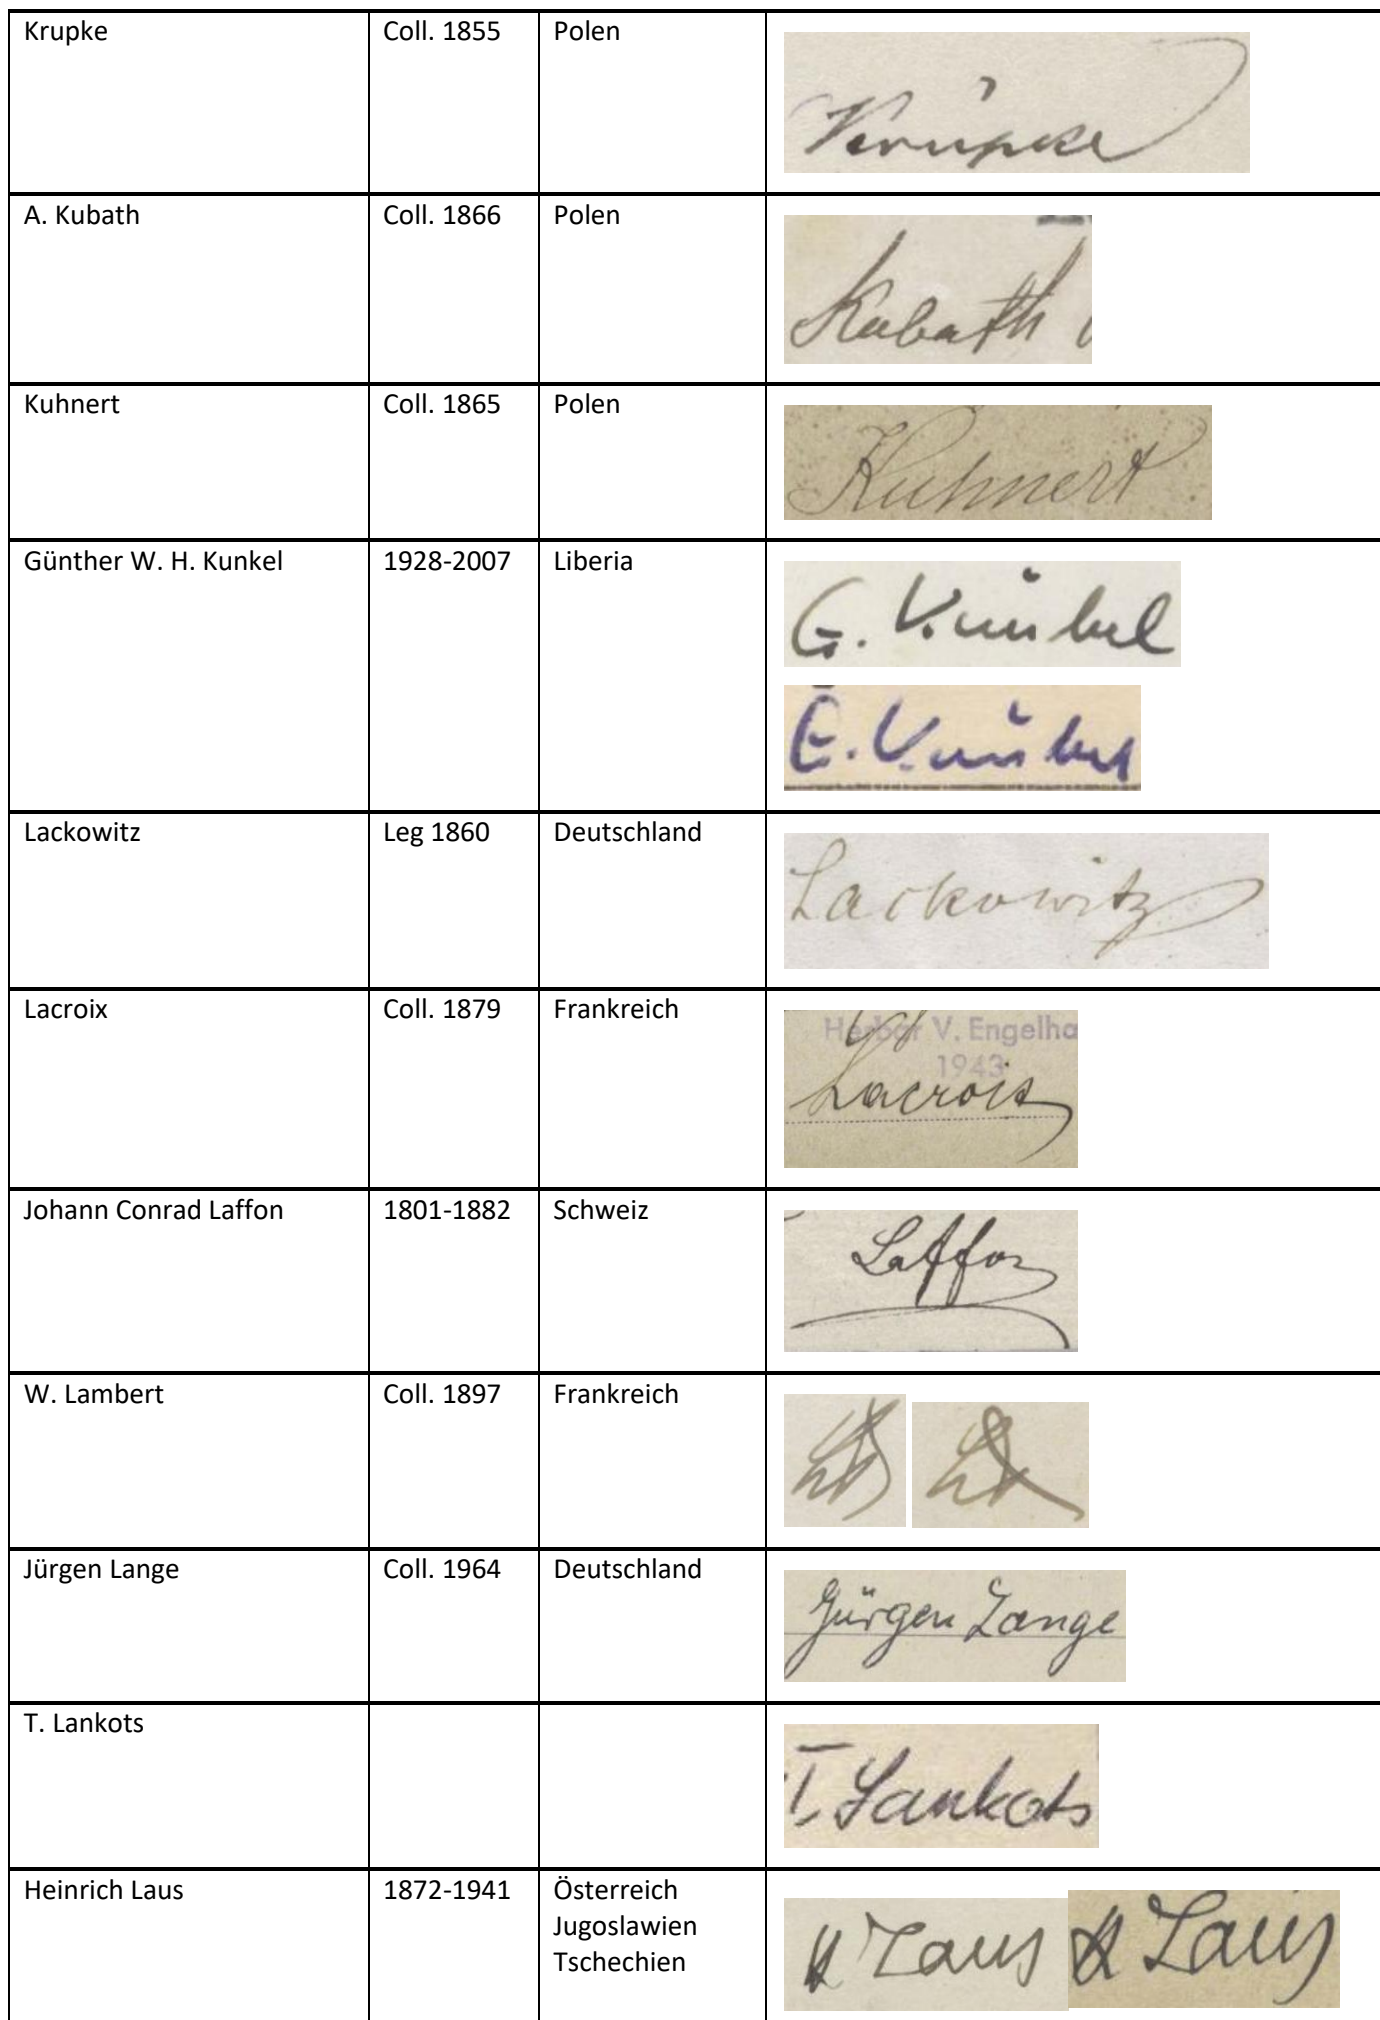 Krupke Coll. 1855 Polen
Krupke
A. Kubath Coll. 1866 Polen
Kubath
Kuhnert Coll. 1865 Polen
Kuhnert
Günther W. H. Kunkel 1928-2007 Liberia
G. Kunkel
G. Kunkel
Lackowitz Leg 1860 Deutschland
Lackowitz
Lacroix Coll. 1879 Frankreich
Herbar V. Engelha
1943
Lacroix
Johann Conrad Laffon 1801-1882 Schweiz
Laffon
W. Lambert Coll. 1897 Frankreich
Jürgen Lange Coll. 1964 Deutschland
Jürgen Lange
T. Lankots
T. Lankots
Heinrich Laus 1872-1941 Österreich
Jugoslawien
Tschechien
H Laus H Laus